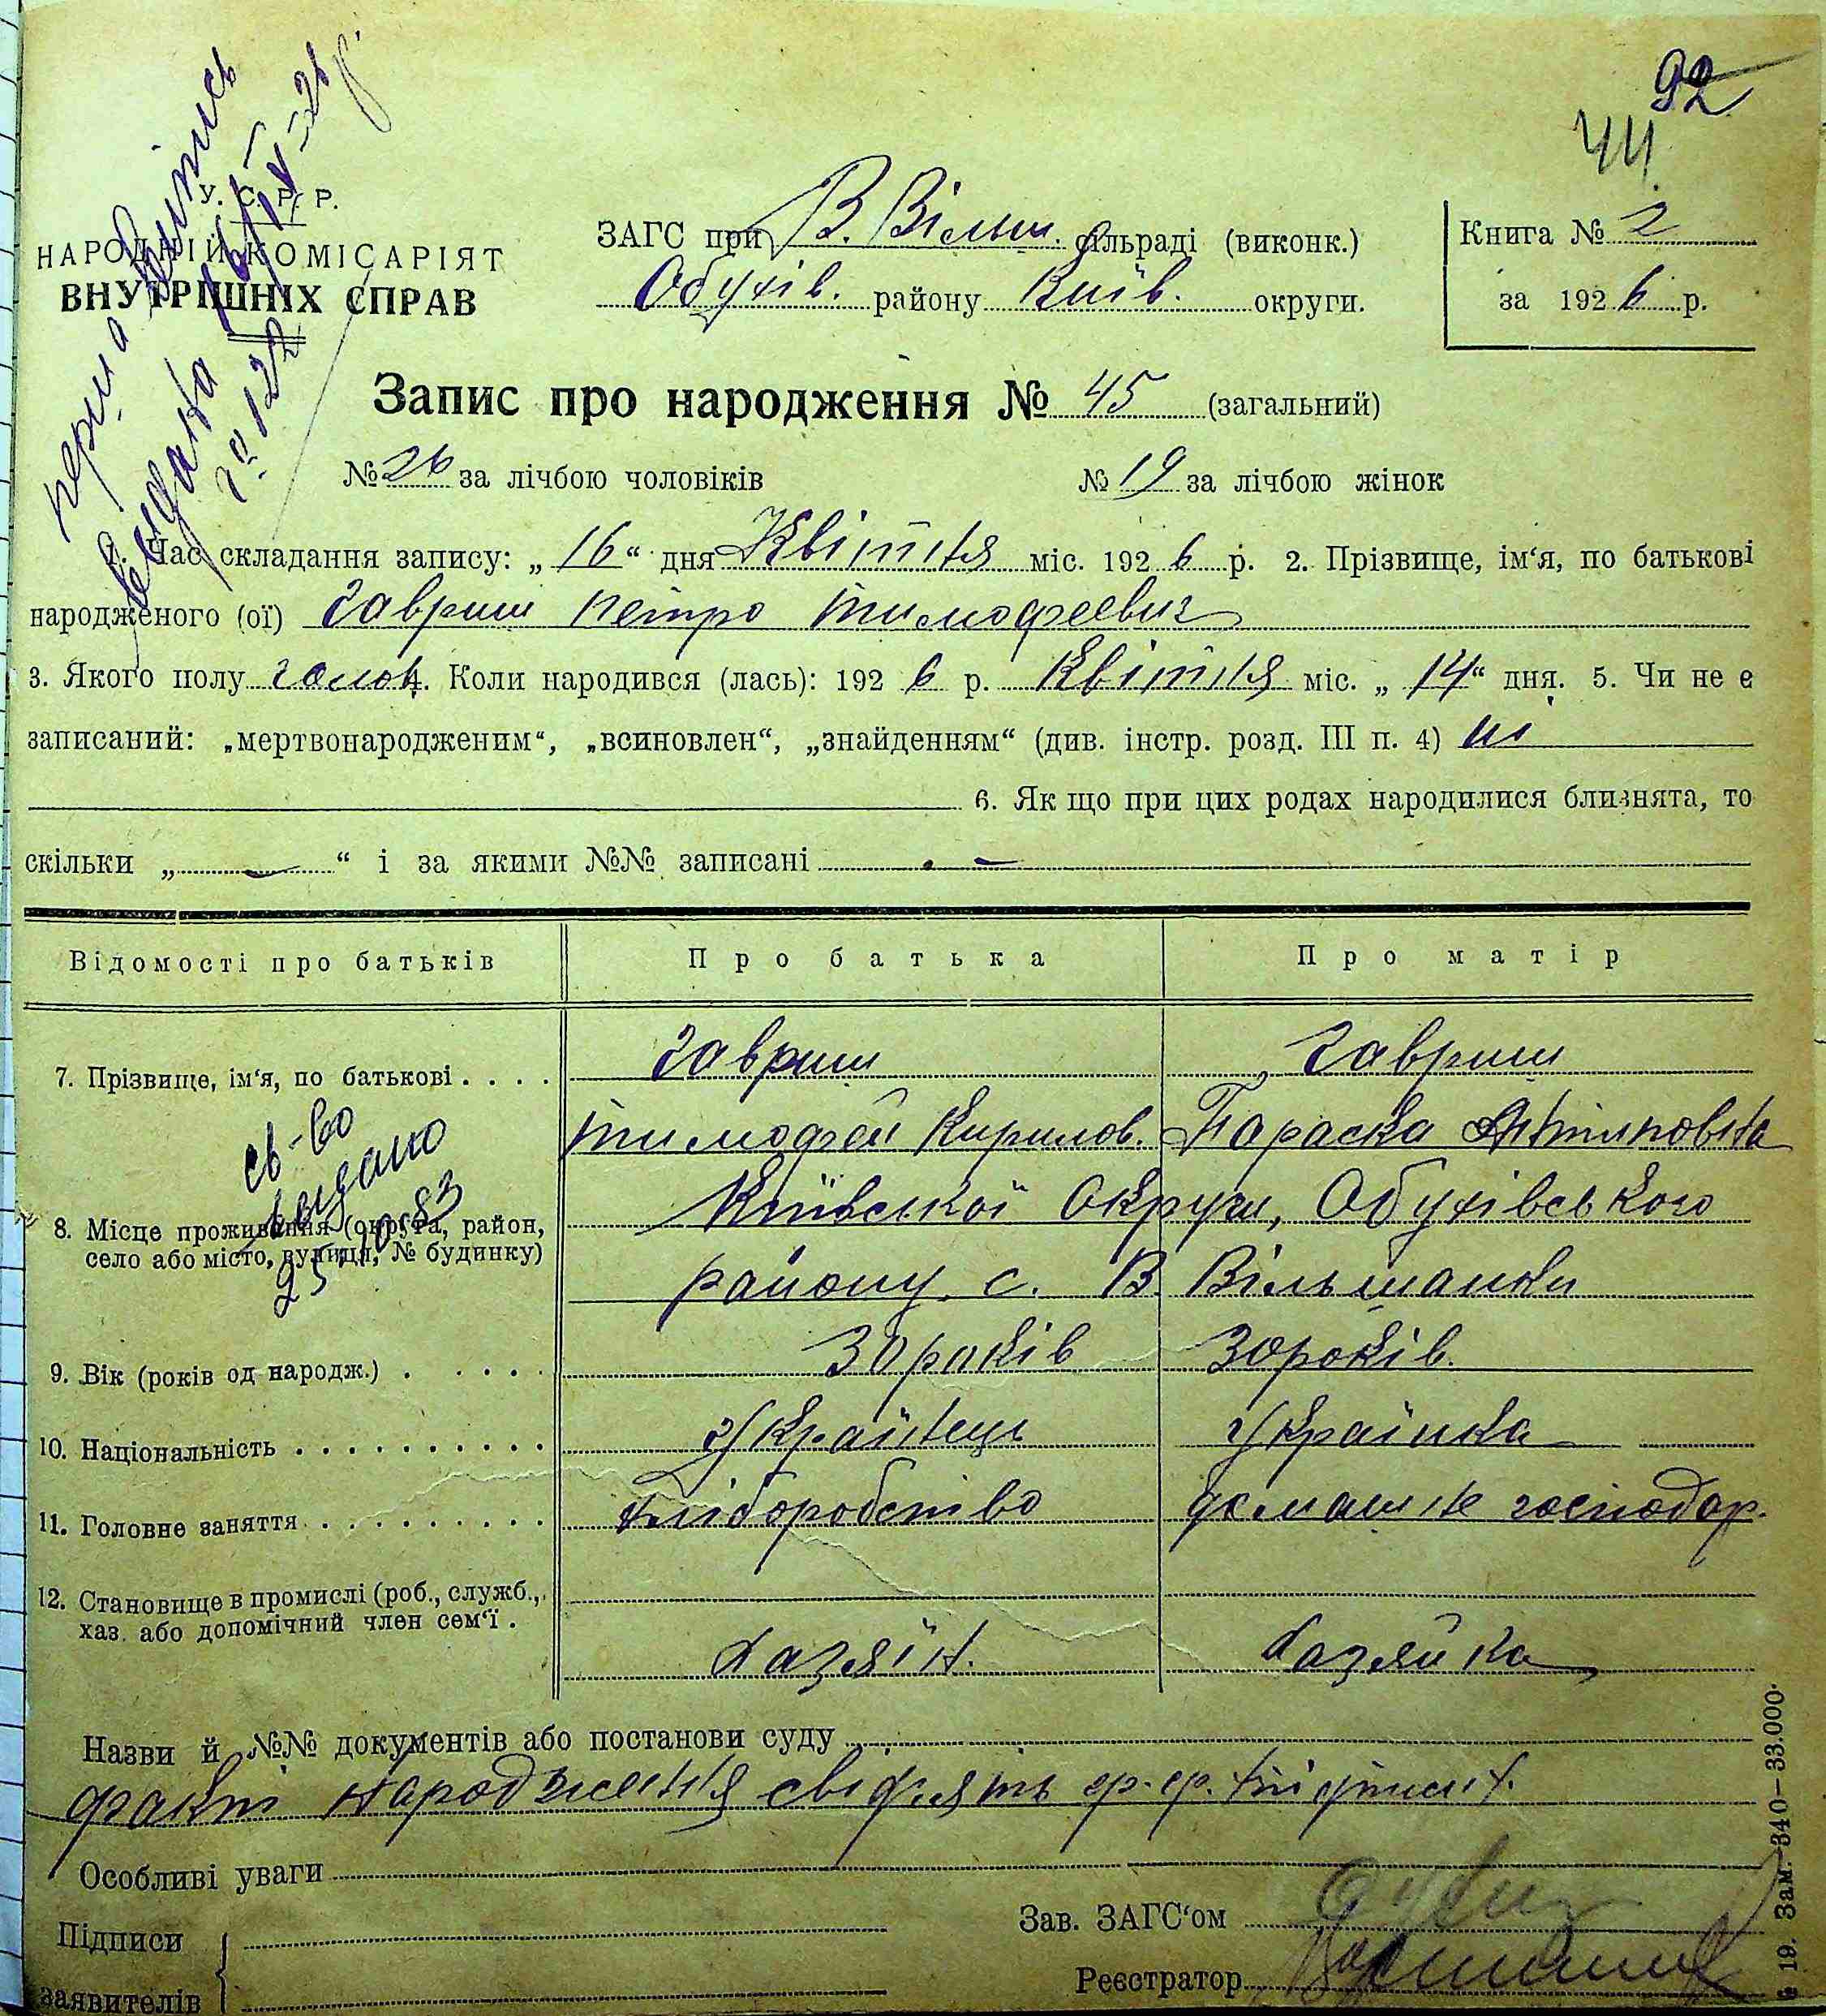 92
44
У. С. Р. Р.
НАРОДНІЙ КОМІСАРІЯТ
ВНУТРІШНІХ СПРАВ
перша виписъ
видана 16/IV-26 р.
ЗАГС при В. Вільш. сільраді (виконк.)
Обухів. району Київ. округи.
Книга № 2
за 1926 р.
Запис про народження № 45 (загальний)
№ 26 за лічбою чоловіків № 19 за лічбою жінок
1. Час складання запису: „16“ дня Квітня міс. 1926 р. 2. Прізвище, ім‘я, по батькові
народженого (ої) Гавриш Петро Тимофеевич
3. Якого полу чолов. 4. Коли народився (лась): 1926 р. Квітня міс. „14“ дня. 5. Чи не є
записаний: „мертвонародженим“, „всиновлен“, „знайденням“ (див. інстр. розд. III п. 4) ні
6. Як що при цих родах народилися близнята, то
скільки „ — “ і за якими №№ записані —
Відомості про батьків Про батька Про матір
7. Прізвище, ім‘я, по батькові . . . . Гавриш Гавриш
Тимофей Кирилов. Параска Антиповна
св-во
видано
25.10.83
8. Місце проживання (округа, район,
село або місто, вулиця, № будинку)
Київської Округи, Обухівського
району с. В. Вільшанки
9. Вік (років од народж.) . . . . . 30 років 30 років
10. Національність . . . . . . . . . . Українець Українка
11. Головне заняття . . . . . . . . . . Хліборобство домашнє господар.
12. Становище в промислі (роб., служб.,
хаз. або допомічний член сем‘ї .
Хазяїн. Хазяйка
Назви й №№ документів або постанови суду
факт народження свідчать гр. гр.
Особливі уваги
Підписи
заявителів
Зав. ЗАГС‘ом
Реєстратор
19. Зам.-340-33.000.